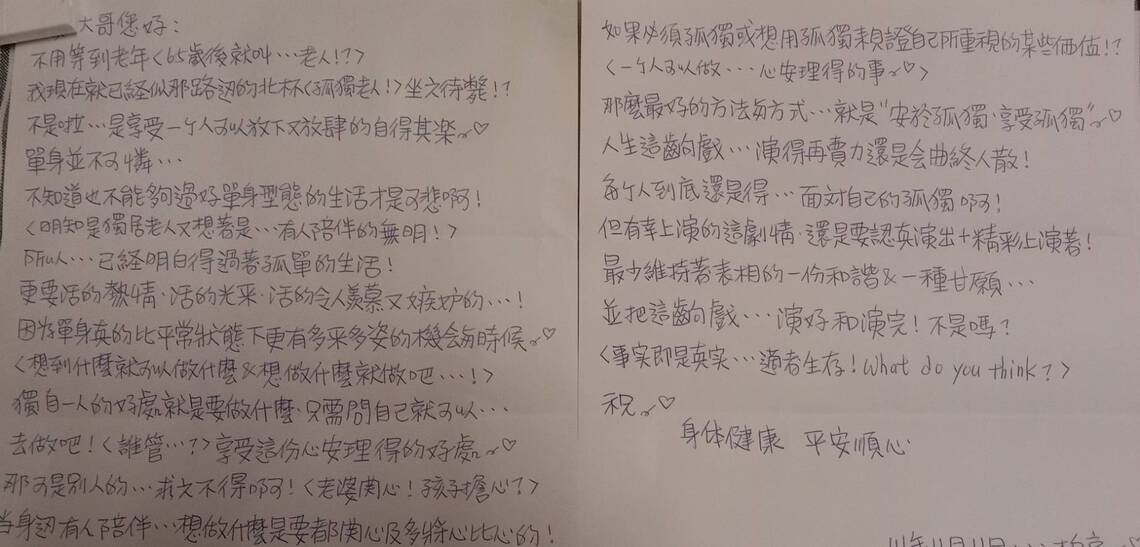 大哥您好:
不用等到老年<65歲後就叫…老人!?>
我現在就已經似那路边的北杯<孤獨老人!>坐立待斃!?
不是啦…是享受一个人可以放下又放肆的自得其樂~♡
單身並不可憐…
不知道也不能夠過好單身型態的生活才是可悲啊!
<明知是獨居老人又想著是…有人陪伴的無明!>
所以…已経明白得過著孤單的生活!
更要活的熱情·活的光采·活的令人羨慕又嫉妒的…!
因為單身真的比平常狀態下更有多采多姿的機会与時候~♡
<想到什麼就可以做什麼&想做什麼就做吧…!>
獨自一人的好處就是要做什麼·只需問自己就可以…
去做吧!<誰管…?>享受這份心安理得的好處~♡
那可是別人的…求之不得啊!<老婆関心!孩子擔心?>
当身边有人陪伴…想做什麼是要都関心及多將心比心的!
如果必須孤獨或想用孤獨來證自己所重視的某些価值!?
<一个人可以做…心安理得的事~♡>
那麼最好的方法与方式…就是"安於孤獨·享受孤獨"~♡
人生這齣戲…演得再賣力還是会曲終人散!
每个人到底還是得…面対自己的孤獨啊!
但有幸上演的這劇情·還是要認真演出+精彩上演著!
最少維持著表相的一份和諧&一種甘願…
並把這齣戲…演好和演完!不是嗎?
<事実即是真実…適者生存!What do you think?>
祝~♡
身体健康 平安順心
111年11月11日…